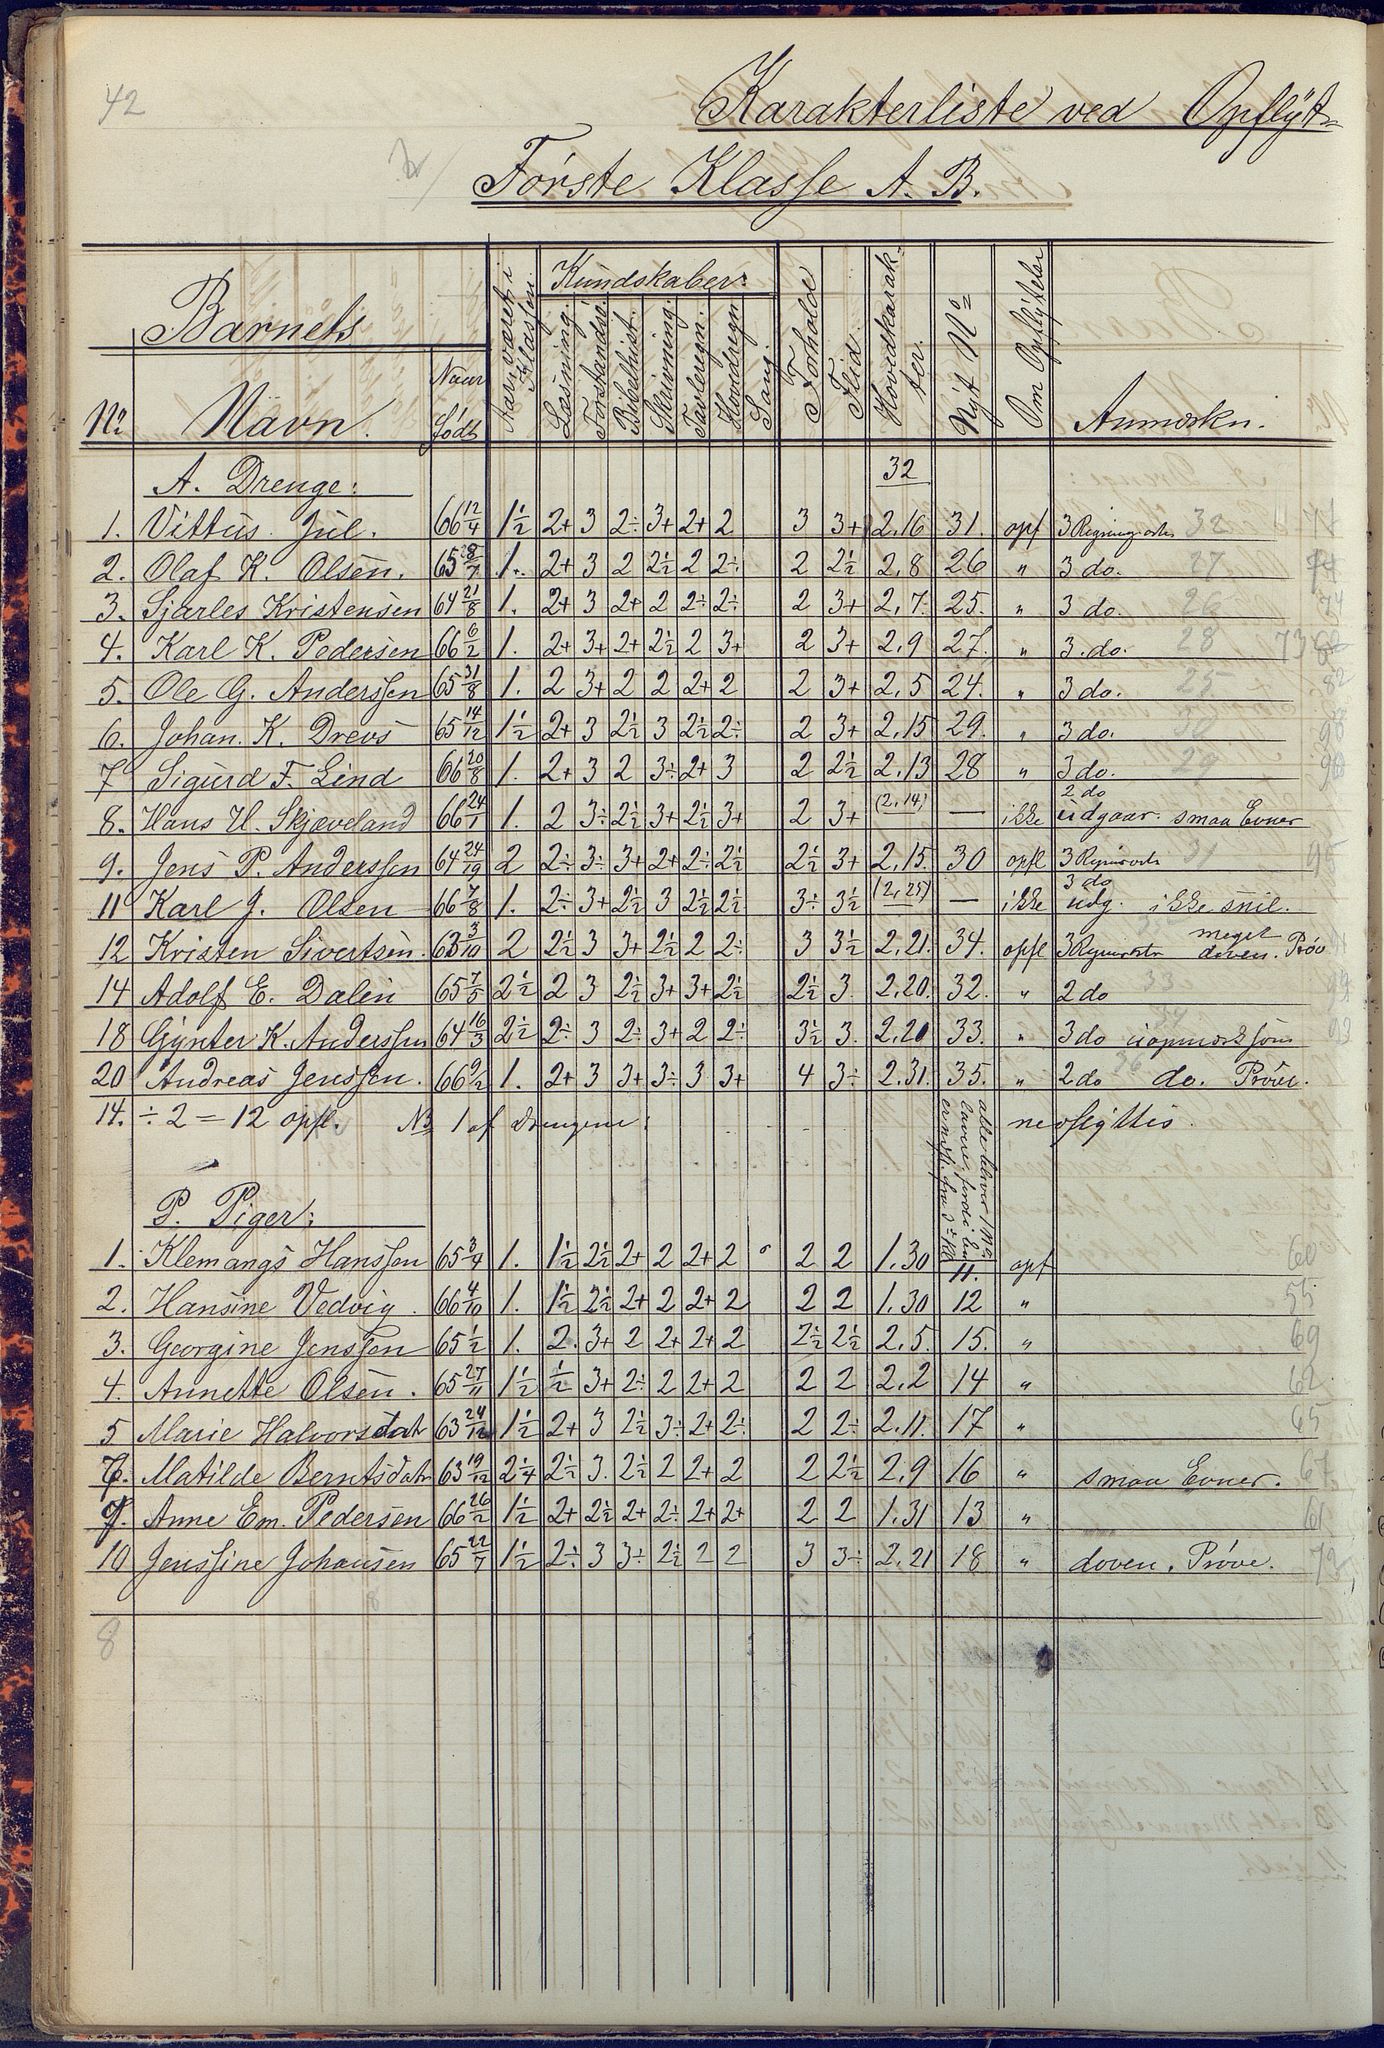 42
Karakterliste ved Opflÿt-
Første Klasse A. B.
Barnets
No. Navn. Naar født Aar været i Klassen. Kundskaber: Læsning. Forstandsø. Bibelhist. Skrivning. Tavleregn. Hovedregn. Sang. Forholde Flid. Hovedkarakter. Nyt No Om Opflyttelse Anmærkn.
A. Drenge: 32
1. Vittus Jul. 66 12/4 1½ 2+ 3 2÷ 3+ 2+ 2 3 3+ 2,16 31. opf 3 Regningsarter 32
2. Olaf K. Olsen. 65 28/7 1. 2+ 3 2 2½ 2 2÷ 2 2½ 2,8 26 " 3 do. 27
3. Sjarles Kristensen 64 21/8 1. 2+ 3 2+ 2 2÷ 2÷ 2 3+ 2,7 25. " 3 do. 26 74
4. Karl K. Pedersen 66 6/2 1. 2+ 3+ 2+ 2½ 2 3+ 2 3+ 2,9 27. " 3. do. 28 73
5. Ole G. Anderssen 65 31/8 1. 2 3+ 2 2 2+ 2 2 3+ 2,5 24. " 3 do. 25 82
6. Johan. K. Drevs 65 14/12 1½ 2+ 3 2½ 3 2½ 2÷ 2 3+ 2,15 29. " 3 do. 30 98
7 Sigurd F. Lind 66 20/8 1. 2+ 3 2 3÷ 2+ 3 2 2½ 2,13 28 " 3 do. 29
8. Hans H. Skjæveland 66 24/1 1. 2 3÷ 2½ 3+ 2½ 3+ 2 3+ (2,14) — ikke 2 do udgaar. smaa Evner
9. Jens P. Anderssen 64 24/19 2 2÷ 3÷ 3+ 2+ 2÷ 2½ 2½ 3+ 2,15. 30 opfl 3 Regnearter 31 95
11 Karl J. Olsen 66 7/8 1. 2÷ 3+ 2½ 3 2½ 2½ 3÷ 3½ (2,25) — ikke 3 do udg. ikke snil.
12 Kristen Sivertsen. 63 3/10 2 2½ 3 3+ 2½ 2 2÷ 3 3½ 2,21. 34. opfl 3 Regnearter meget doven. Prøv
14 Adolf E. Dalin 65 7/5 2½ 2 3 2½ 3+ 3+ 2½ 2½ 3 2,20. 32. " 2 do 33
18 Gÿnter K. Anderssen 64 16/3 2½ 2÷ 3 2÷ 3+ 2 2÷ 3½ 3. 2,20 33. " 3 do uopmærksom
20 Andreas Jenssen. 66 9/2 1. 2+ 3 3+ 3÷ 3 3+ 4 3÷ 2,31. 35. " 2 do 36 do. Prøve.
14. ÷ 2 = 12 opfl. NB 1 af Drengene: neoflÿttis
P. Piger:
1. Klemangs Hanssen 65 3/4 1. 1½ 2½ 2+ 2 2+ 2 0 2 2 1,30 11. opf 60
2. Hansine Vedvig. 66 4/10 1. 1½ 2½ 2+ 2 2+ 2 2 2 1,30 12 " 55
3. Georgine Jenssen 65 1/2 1. 2. 3+ 2 2+ 2+ 2 2½ 2½ 2,5. 15. " 69
4. Annette Olsen. 65 27/11 1½ ½ 3+ 2÷ 2 2+ 2 2 2 2,2 14 " 62
5 Marie Halvorsdatr 63 24/12 1½ 2+ 3 2½ 3÷ 2+ 2÷ 2 2÷ 2,11. 17 " 65
6. Matilde Berntsdatr 63 19/12 2¼ 2½ 3. 2½ 2 2+ 2 2 2½ 2,9 16 " smaa Evner. 67
7. Anne Em. Pedersen 66 26/2 1½ 2+ 2½ 2+ 2÷ 2+ 2+ 2 2 1,31 13 " 61
10 Jenssine Johansen 65 22/7 1½ 2÷ 3 3÷ 2½ 2 2 3 3÷ 2,21 18 " doven. Prøve. 72
8